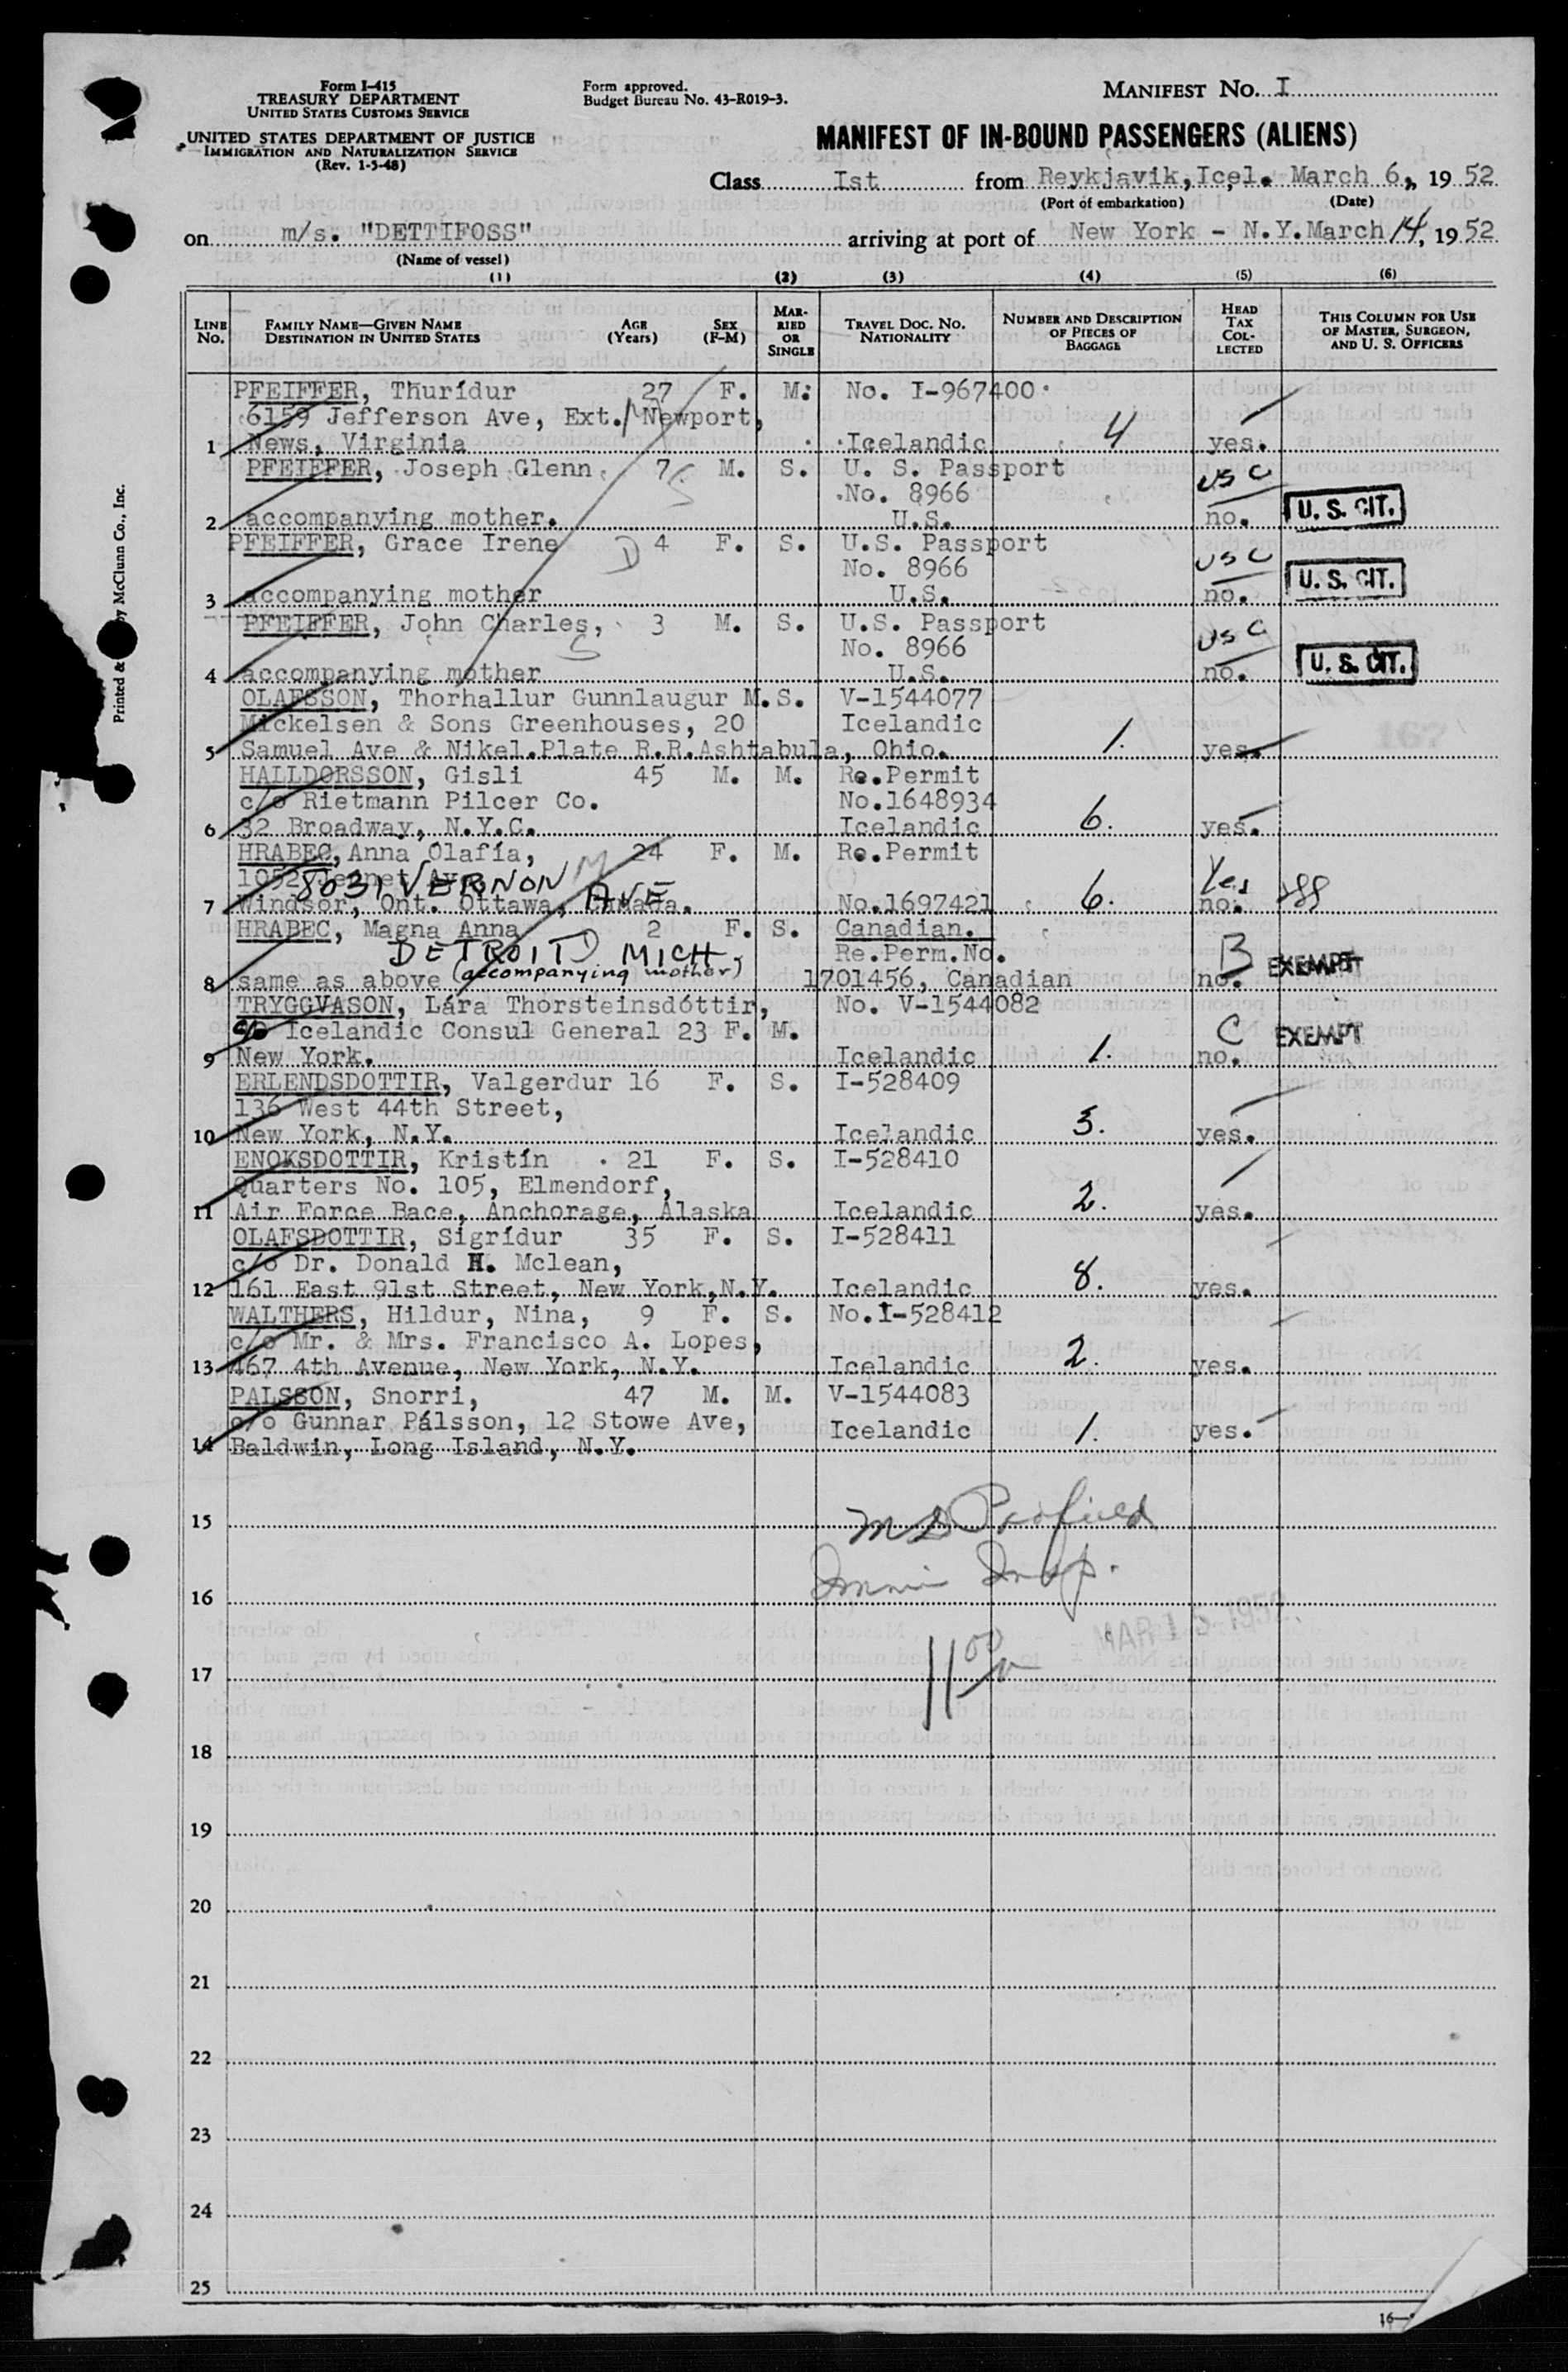 Form I-415
TREASURY DEPARTMENT
UNITED STATES CUSTOMS SERVICE
UNITED STATES DEPARTMENT OF JUSTICE
IMMIGRATION AND NATURALIZATION SERVICE
(Rev. 1-5-48)
Form approved.
Budget Bureau No. 43-R019-3.
MANIFEST NO. I
MANIFEST OF IN-BOUND PASSENGERS (ALIENS)
Class Ist from Reykjavik, Icel. March 6, 19 52
(Port of embarkation) (Date)
on m/s. "DETTIFOSS" arriving at port of New York - N.Y. March 14, 19 52
(Name of vessel)
(1) (2) (3) (4) (5) (6)
LINE No. FAMILY NAME—GIVEN NAME DESTINATION IN UNITED STATES AGE (Years) SEX (F-M) MARRIED OR SINGLE TRAVEL DOC. NO. NATIONALITY NUMBER AND DESCRIPTION OF PIECES OF BAGGAGE HEAD TAX COLLECTED THIS COLUMN FOR USE OF MASTER, SURGEON, AND U. S. OFFICERS
PFEIFFER, Thurídur 27 F. M. No. I-967400
6159 Jefferson Ave, Ext. Newport,
1 News, Virginia Icelandic 4 yes.
PFEIFFER, Joseph Glenn 7 M. S. U. S. Passport
S No. 8966 USC
2 accompanying mother. U.S. no. U. S. CIT.
PFEIFFER, Grace Irene D 4 F. S. U.S. Passport
No. 8966 USC
3 accompanying mother U.S. no. U. S. CIT.
PFEIFFER, John Charles, 3 M. S. U.S. Passport
S No. 8966 USC
4 accompanying mother U.S. no. U. S. CIT.
OLAFSSON, Thorhallur Gunnlaugur M. S. V-1544077
Mickelsen & Sons Greenhouses, 20 Icelandic
5 Samuel Ave & Nikel.Plate R.R.Ashtabula, Ohio. 1. yes.
HALLDORSSON, Gisli 45 M. M. Re.Permit
c/o Rietmann Pilcer Co. No.1648934
6 32 Broadway, N.Y.C. Icelandic 6. yes.
HRABEC, Anna Olafía, 24 F. M. Re.Permit
1052 8031 VERNON M Yes
7 Windsor, Ont. Ottawa, Canada. AVE No.1697421 6. no.
HRABEC, Magna Anna 2 F. S. Canadian.
DETROIT D MICH. Re.Perm.No. B
8 same as above (accompanying mother) 1701456, Canadian no. EXEMPT
TRYGGVASON, Lára Thorsteinsdóttir, No. V-1544082
c/o Icelandic Consul General 23 F. M. C EXEMPT
9 New York. Icelandic 1. no.
ERLENDSDOTTIR, Valgerdur 16 F. S. I-528409
136 West 44th Street,
10 New York, N.Y. Icelandic 3. yes.
ENOKSDOTTIR, Kristín 21 F. S. I-528410
Quarters No. 105, Elmendorf,
11 Air Force Bace, Anchorage, Alaska Icelandic 2. yes.
OLAFSDOTTIR, Sigrídur 35 F. S. I-528411
c/o Dr. Donald H. Mclean,
12 161 East 91st Street, New York,N.Y. Icelandic 8. yes.
WALTHERS, Hildur, Nina, 9 F. S. No.I-528412
c/o Mr. & Mrs. Francisco A. Lopes,
13 467 4th Avenue, New York, N.Y. Icelandic 2. yes.
PALSSON, Snorri, 47 M. M. V-1544083
c/o Gunnar Pálsson, 12 Stowe Ave, Icelandic 1. yes.
14 Baldwin, Long Island, N.Y.
15
16 Insp.
MAR 15 1952
17
18
19
20
21
22
23
24
25
16—
Printed & by McClunn Co., Inc.